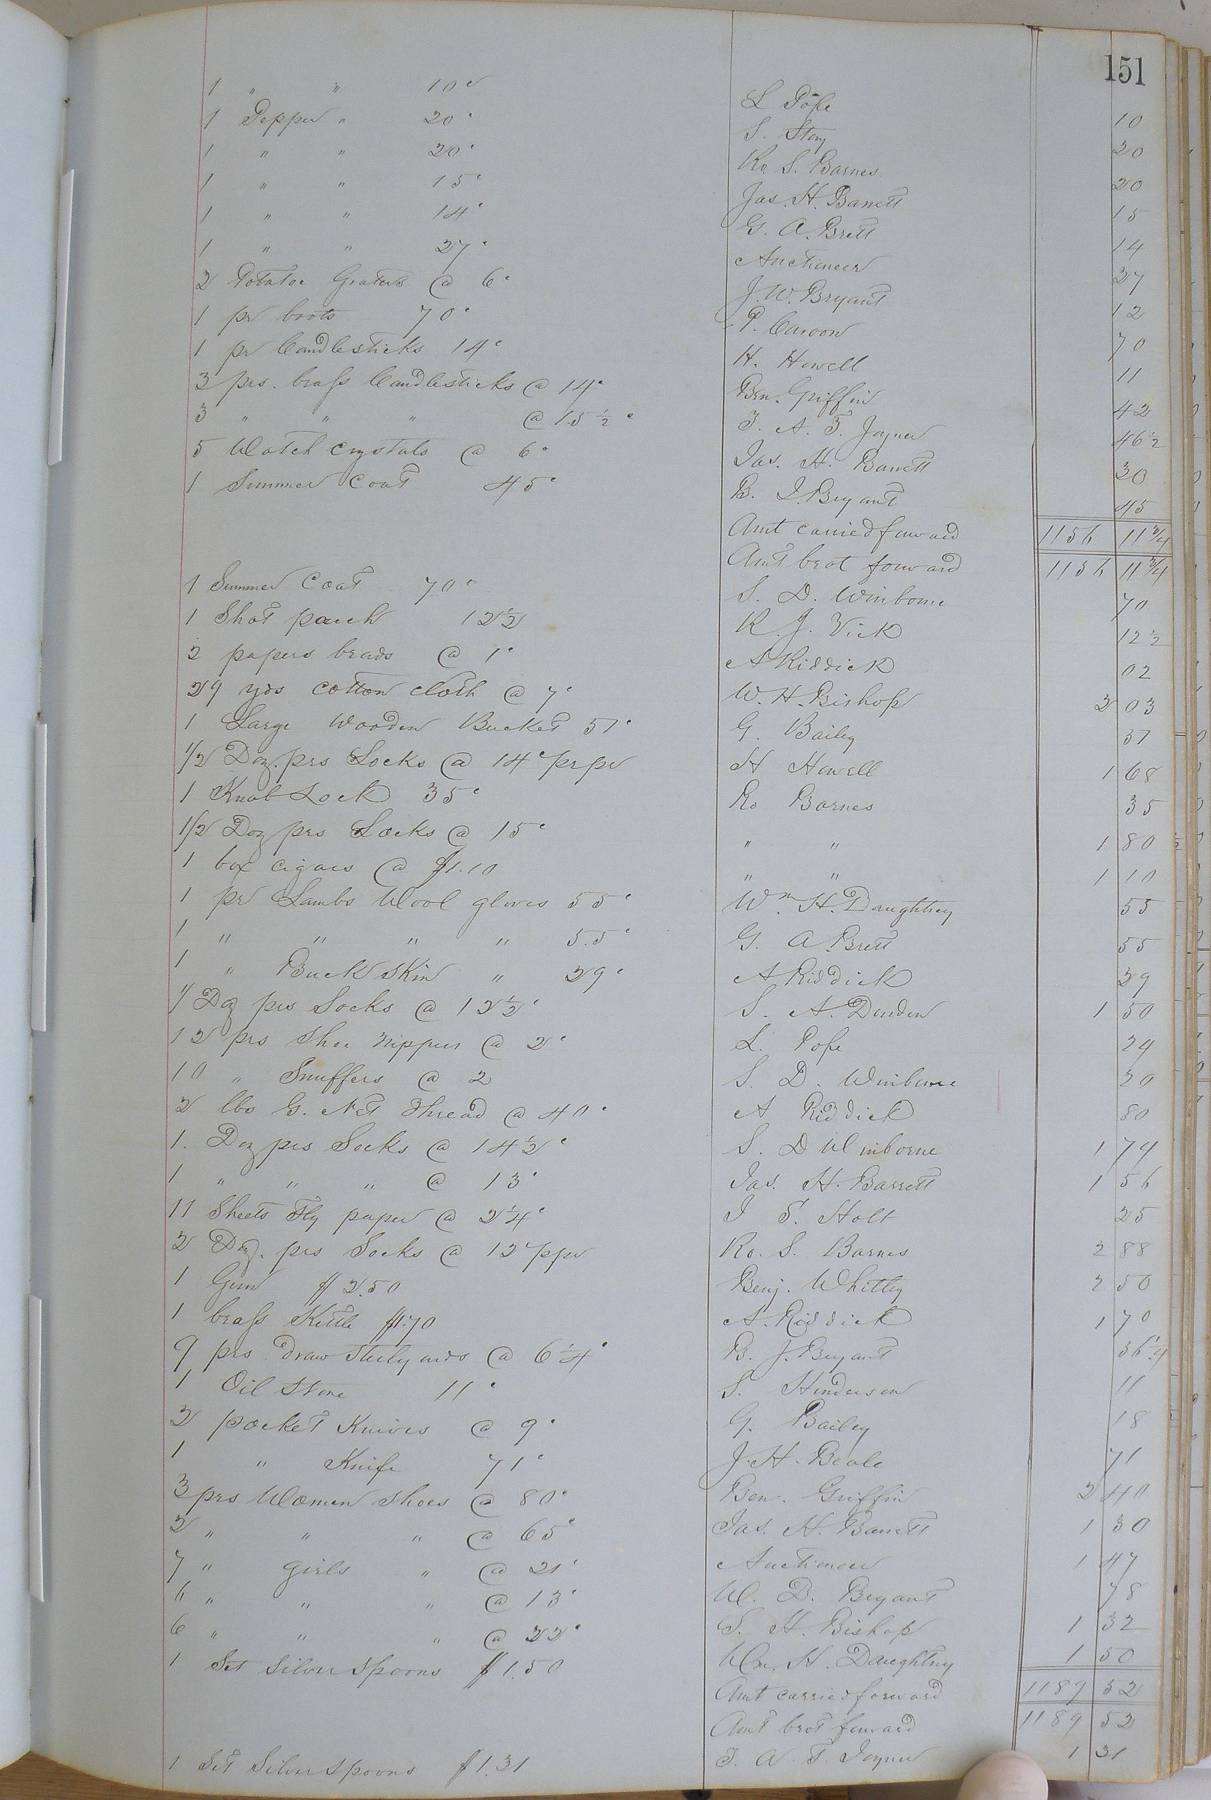 151
1 " " 10c L Pope 10
1 Pepper " 20c S. Story 20
1 " " 20c Ro S. Barnes 20
1 " " 15c Jas. H. Barrett 15
1 " " 14c G. A. Brett 14
1 " " 27c Auctioneer 27
2 Potatoe Graters @ 6c J. W. Bryant 12
1 pr boots 70c P. Caroon 70
1 pr Candlesticks 14c H. Howell 11
3 prs. brass Candlesticks @ 14c Ben. Griffin 42
3 " " " @ 15 1/2c T. A. T. Joyner 46 1/2
5 Watch crystals @ 6c Jas. H. Barrett 30
1 Summer Coat 45c B. J. Bryant 45
Amt carried forward 1156 11 3/4
Amt brot forward 1156 11 3/4
1 Summer Coat 70c S. D. Winborne 70
1 Shot pouch 12 1/2 R. J. Vick 12 1/2
2 papers brads @ 1c A Riddick 02
29 yds cotton cloth @ 7c W. H. Bishop 2 03
1 Large Wooden Bucket 51c G. Bailey 51
1/2 Doz. prs Socks @ 14c pr pr H Howell 1 68
1 Knob Lock 35c Ro Barnes 35
1/2 Doz prs Socks @ 15c " " 1 80
1 box cigars @ $1.10 " " 1 10
1 pr Lambs Wool gloves 55c Wm. H. Daughtry 55
1 " " " " 55c G. A. Brett 55
1 " Buck skin " 29c A Riddick 29
1 Doz prs Socks @ 12 1/2c S. A. Darden 1 50
12 prs Shoe Nippers @ 2c L. Pope 24
10 " Snuffers @ 2 S. D. Winborne 20
2 lbs G. Net Thread @ 40c A Riddick 80
1. Doz prs Socks @ 14 1/2c S. D Winborne 1 74
1 " " " @ 13c Jas. H. Barrett 1 56
11 Sheets Fly paper @ 2 1/4c J F. Holt 25
2 Doz. prs Socks @ 12c p pr Ro. S. Barnes 2 88
1 Gun $2.50 Benj. Whitley 2 50
1 brass Kittle $1.70 A. Riddick 1 70
9 prs Draw Steelyards @ 6 1/4c B. J. Bryant 56 1/4
1 Oil Stone 11c S. Henderson 11
2 pocket Knives @ 9c G. Bailey 18
1 " Knife 71c J. H. Beale 71
3 prs Women shoes @ 80c Ben. Griffin 2 40
2 " " " @ 65c Jas. H. Barrett 1 30
7 " girls " @ 21c Auctioneer 1 47
6 " " " @ 13c W. D. Bryant 78
6 " " " @ 22c S. H. Bishop 1 32
1 Set Silver Spoons $1.50 Wm. H. Daughtry 1 50
Amt carried forward 1189 52
Amt brot forward 1189 52
1 Set Silver Spoons $1.31 T. A. T. Joyner 1 31